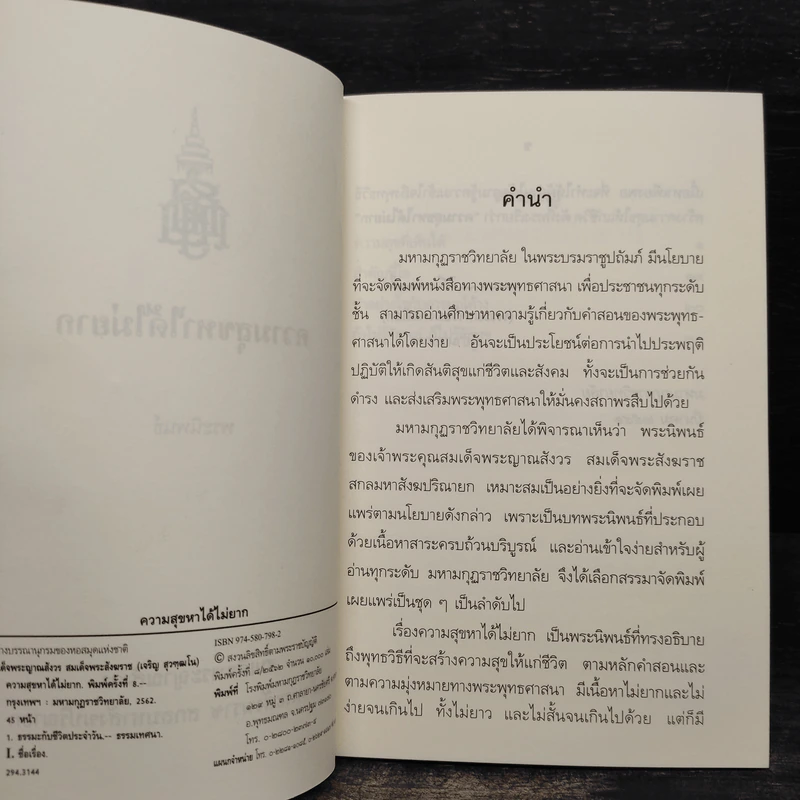 ความสุขหาได้ไม่ยาก
างบรรณานุกรมของหอสมุดแห่งชาติ
ด็จพระญาณสังวร สมเด็จพระสังฆราช (เจริญ สุวฑฺฒโน)
ความสุขหาได้ไม่ยาก. พิมพ์ครั้งที่ 8.--
กรุงเทพฯ : มหามกุฏราชวิทยาลัย, 2562.
45 หน้า
1. ธรรมะกับชีวิตประจำวัน.-- ธรรมเทศนา.
I. ชื่อเรื่อง.
294.3144
ISBN 974-580-798-2
© สงวนลิขสิทธิ์ตามพระราชบัญญัติ
พิมพ์ครั้งที่ ๘/๒๕๖๒ จำนวน ๑๐,๐๐๐ เล่ม
พิมพ์ที่ โรงพิมพ์มหามกุฏราชวิทยาลัย
อ.พุทธมณฑล จ.นครปฐม
แผนกจำหน่าย โทร.
คำนำ
มหามกุฏราชวิทยาลัย ในพระบรมราชูปถัมภ์ มีนโยบาย
ที่จะจัดพิมพ์หนังสือทางพระพุทธศาสนา เพื่อประชาชนทุกระดับ
ชั้น สามารถอ่านศึกษาหาความรู้เกี่ยวกับคำสอนของพระพุทธ-
ศาสนาได้โดยง่าย อันจะเป็นประโยชน์ต่อการนำไปประพฤติ
ปฏิบัติให้เกิดสันติสุขแก่ชีวิตและสังคม ทั้งจะเป็นการช่วยกัน
ดำรง และส่งเสริมพระพุทธศาสนาให้มั่นคงสถาพรสืบไปด้วย
มหามกุฏราชวิทยาลัยได้พิจารณาเห็นว่า พระนิพนธ์
ของเจ้าพระคุณสมเด็จพระญาณสังวร สมเด็จพระสังฆราช
สกลมหาสังฆปริณายก เหมาะสมเป็นอย่างยิ่งที่จะจัดพิมพ์เผย
แพร่ตามนโยบายดังกล่าว เพราะเป็นบทพระนิพนธ์ที่ประกอบ
ด้วยเนื้อหาสาระครบถ้วนบริบูรณ์ และอ่านเข้าใจง่ายสำหรับผู้
อ่านทุกระดับ มหามกุฏราชวิทยาลัย จึงได้เลือกสรรมาจัดพิมพ์
เผยแพร่เป็นชุด ๆ เป็นลำดับไป
เรื่องความสุขหาได้ไม่ยาก เป็นพระนิพนธ์ที่ทรงอธิบาย
ถึงพุทธวิธีที่จะสร้างความสุขให้แก่ชีวิต ตามหลักคำสอนและ
ตามความมุ่งหมายทางพระพุทธศาสนา มีเนื้อหาไม่ยากและไม่
ง่ายจนเกินไป ทั้งไม่ยาว และไม่สั้นจนเกินไปด้วย แต่ก็มี